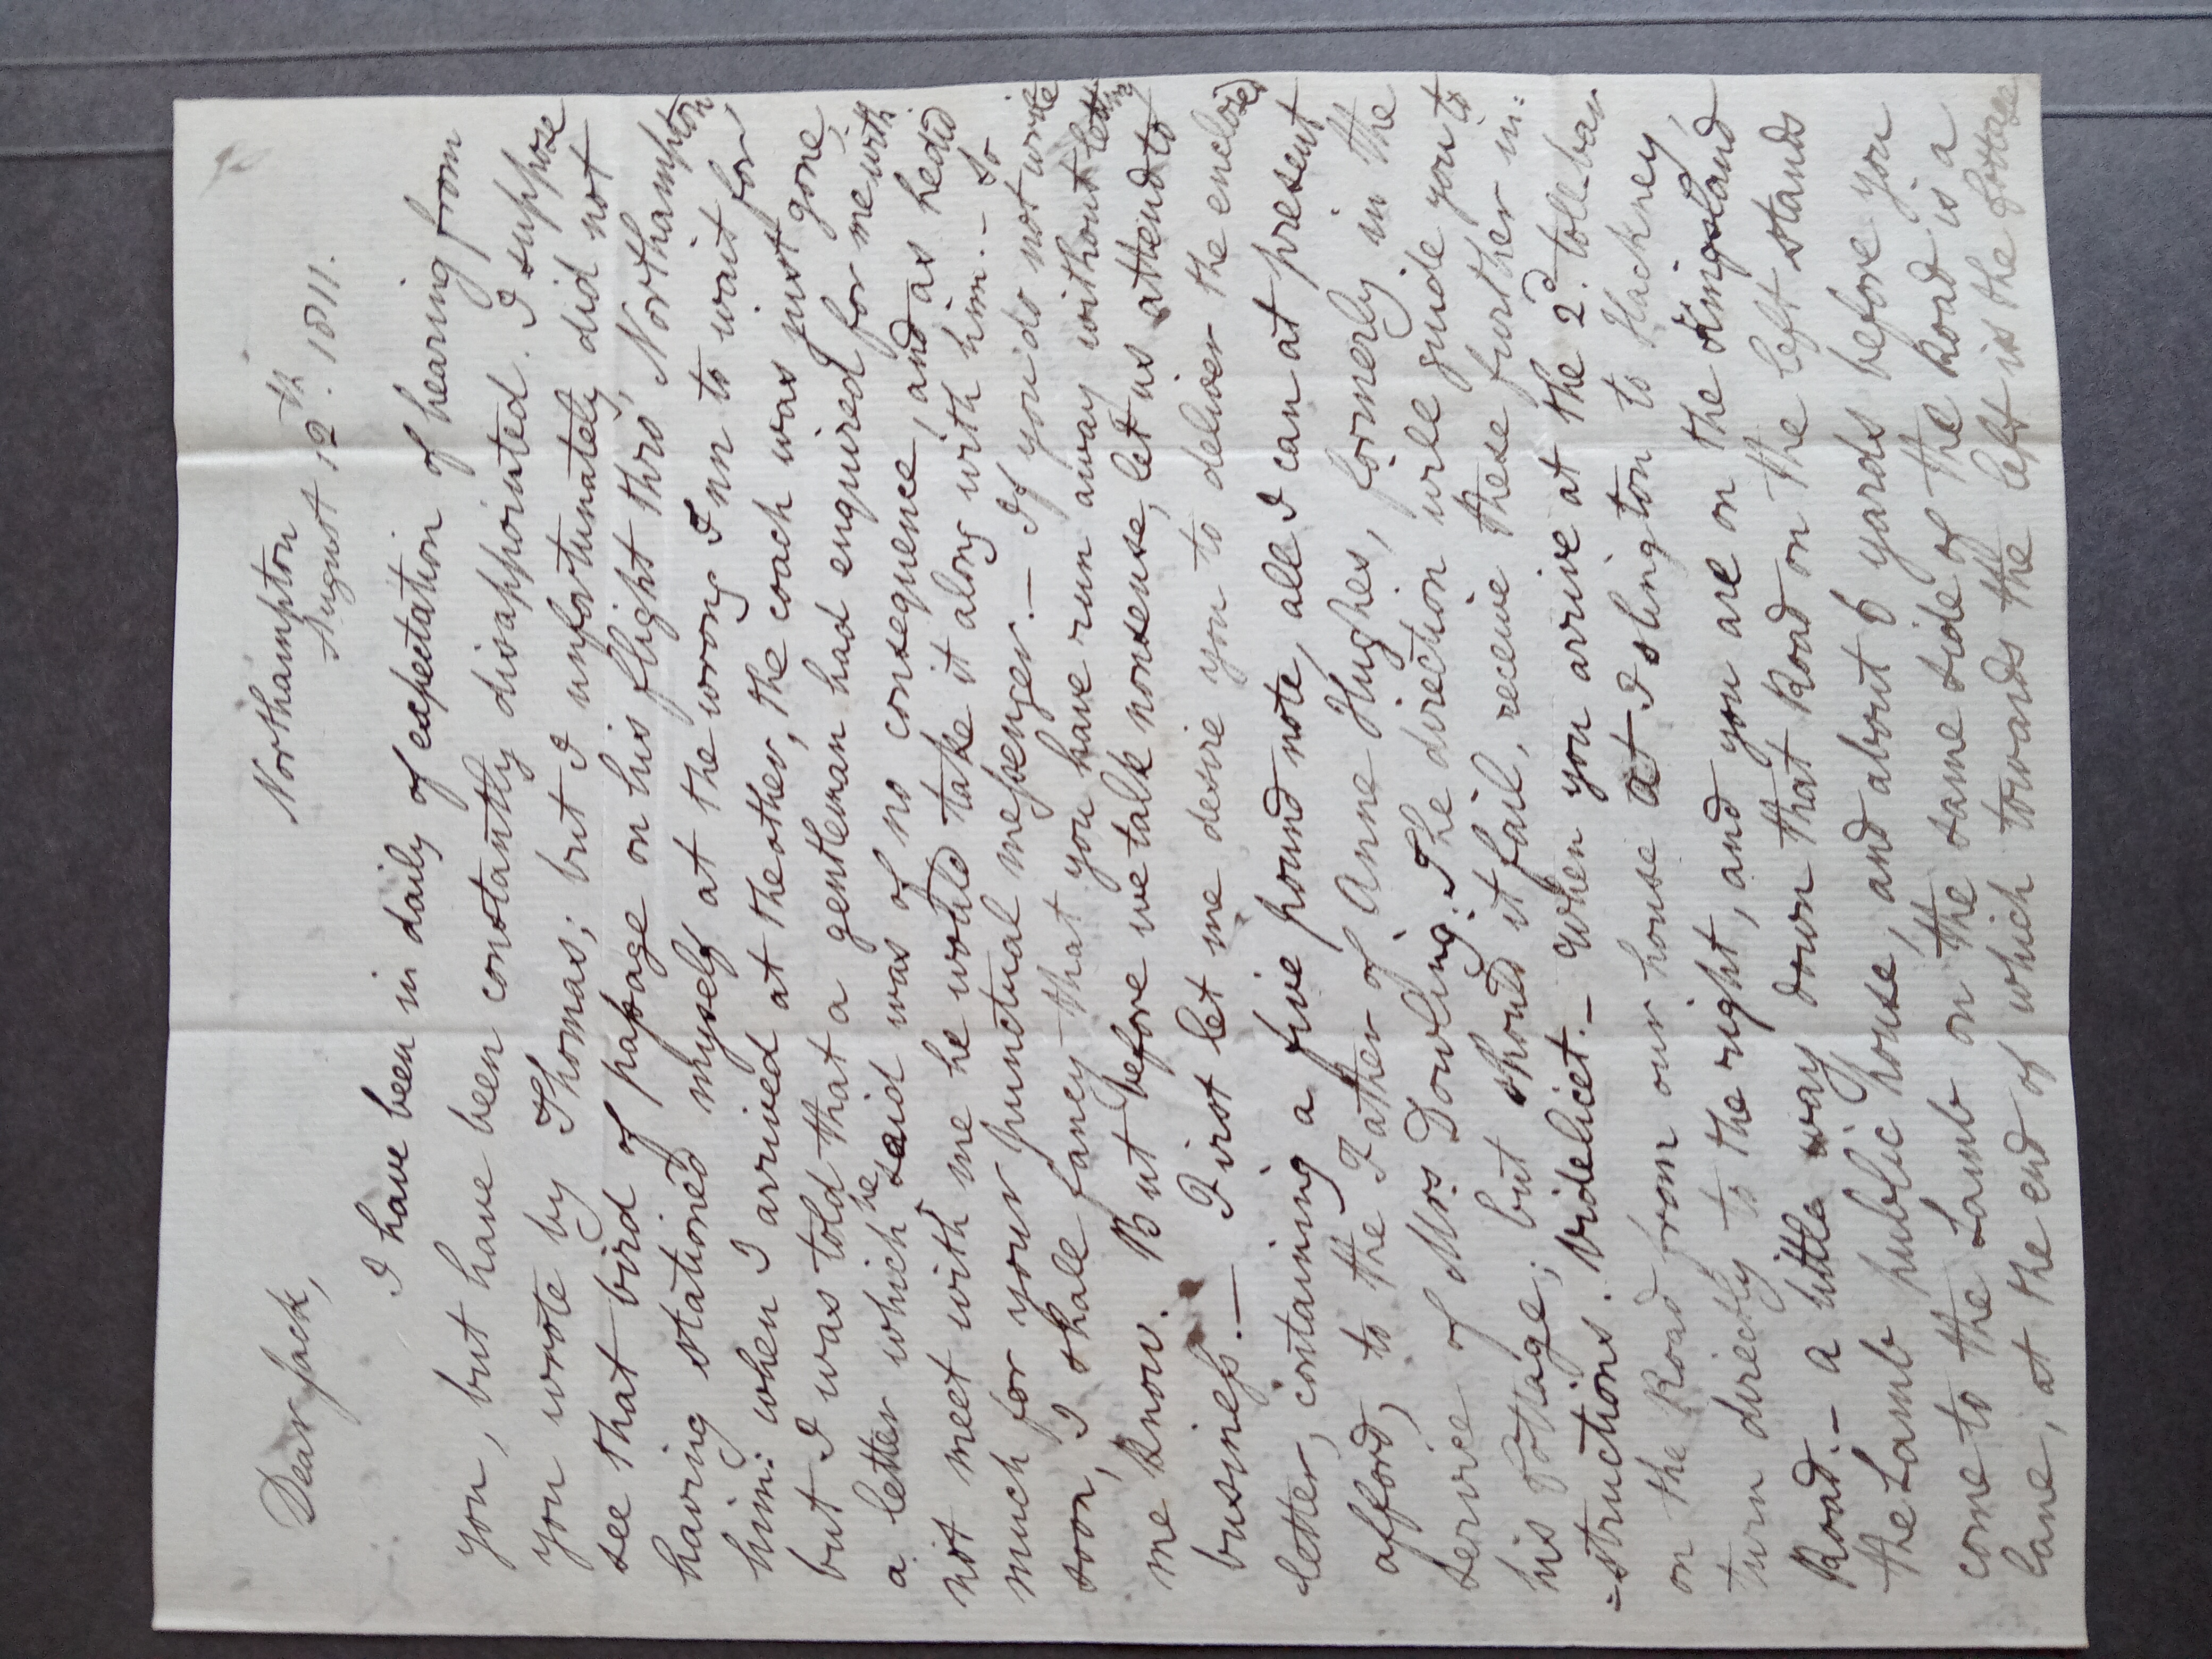 Northampton
August 12th. 1811.
Dear Jack,
I have been in daily of expectation of hearing from
you, but have been constantly disappointed. I suppose
you wrote by Thomas; but I unfortunately did not
see that bird of paſsage on his flight thro' Northampton
having stationed myself at the wrong Inn to wait for
him: when I arrived at the other, the coach was just gone;
but I was told that a gentleman had enquired for me with
a letter which he said was of no consequence, and as he did
not meet with me he would take it along with him. – So
much for your punctual meſsenger. – If you do not write
soon, I shall fancy that you have run away without letting
me know. But before we talk nonsense, let us attend to
busineſs. – First let me desire you to deliver the enclosed
letter, containing a five pound note, all I can at present
afford, to the Father of Anne Hughes, formerly in the
service of Mrs Dowling. The direction will guide you to
his Cottage; but should it fail, receive these further in:
=structions. Videlicet. – When you arrive at the 2d. toll-bar
on the Road from our house at Islington to Hackney,
turn directly to the right, and you are on the Kingsland
Road. – a little way down that Road on the left stands
the Lamb public house, and about 6 yards before you
come to the Lamb on the same side of the Road is a
lane, at the end of which towards the left is the Cottage